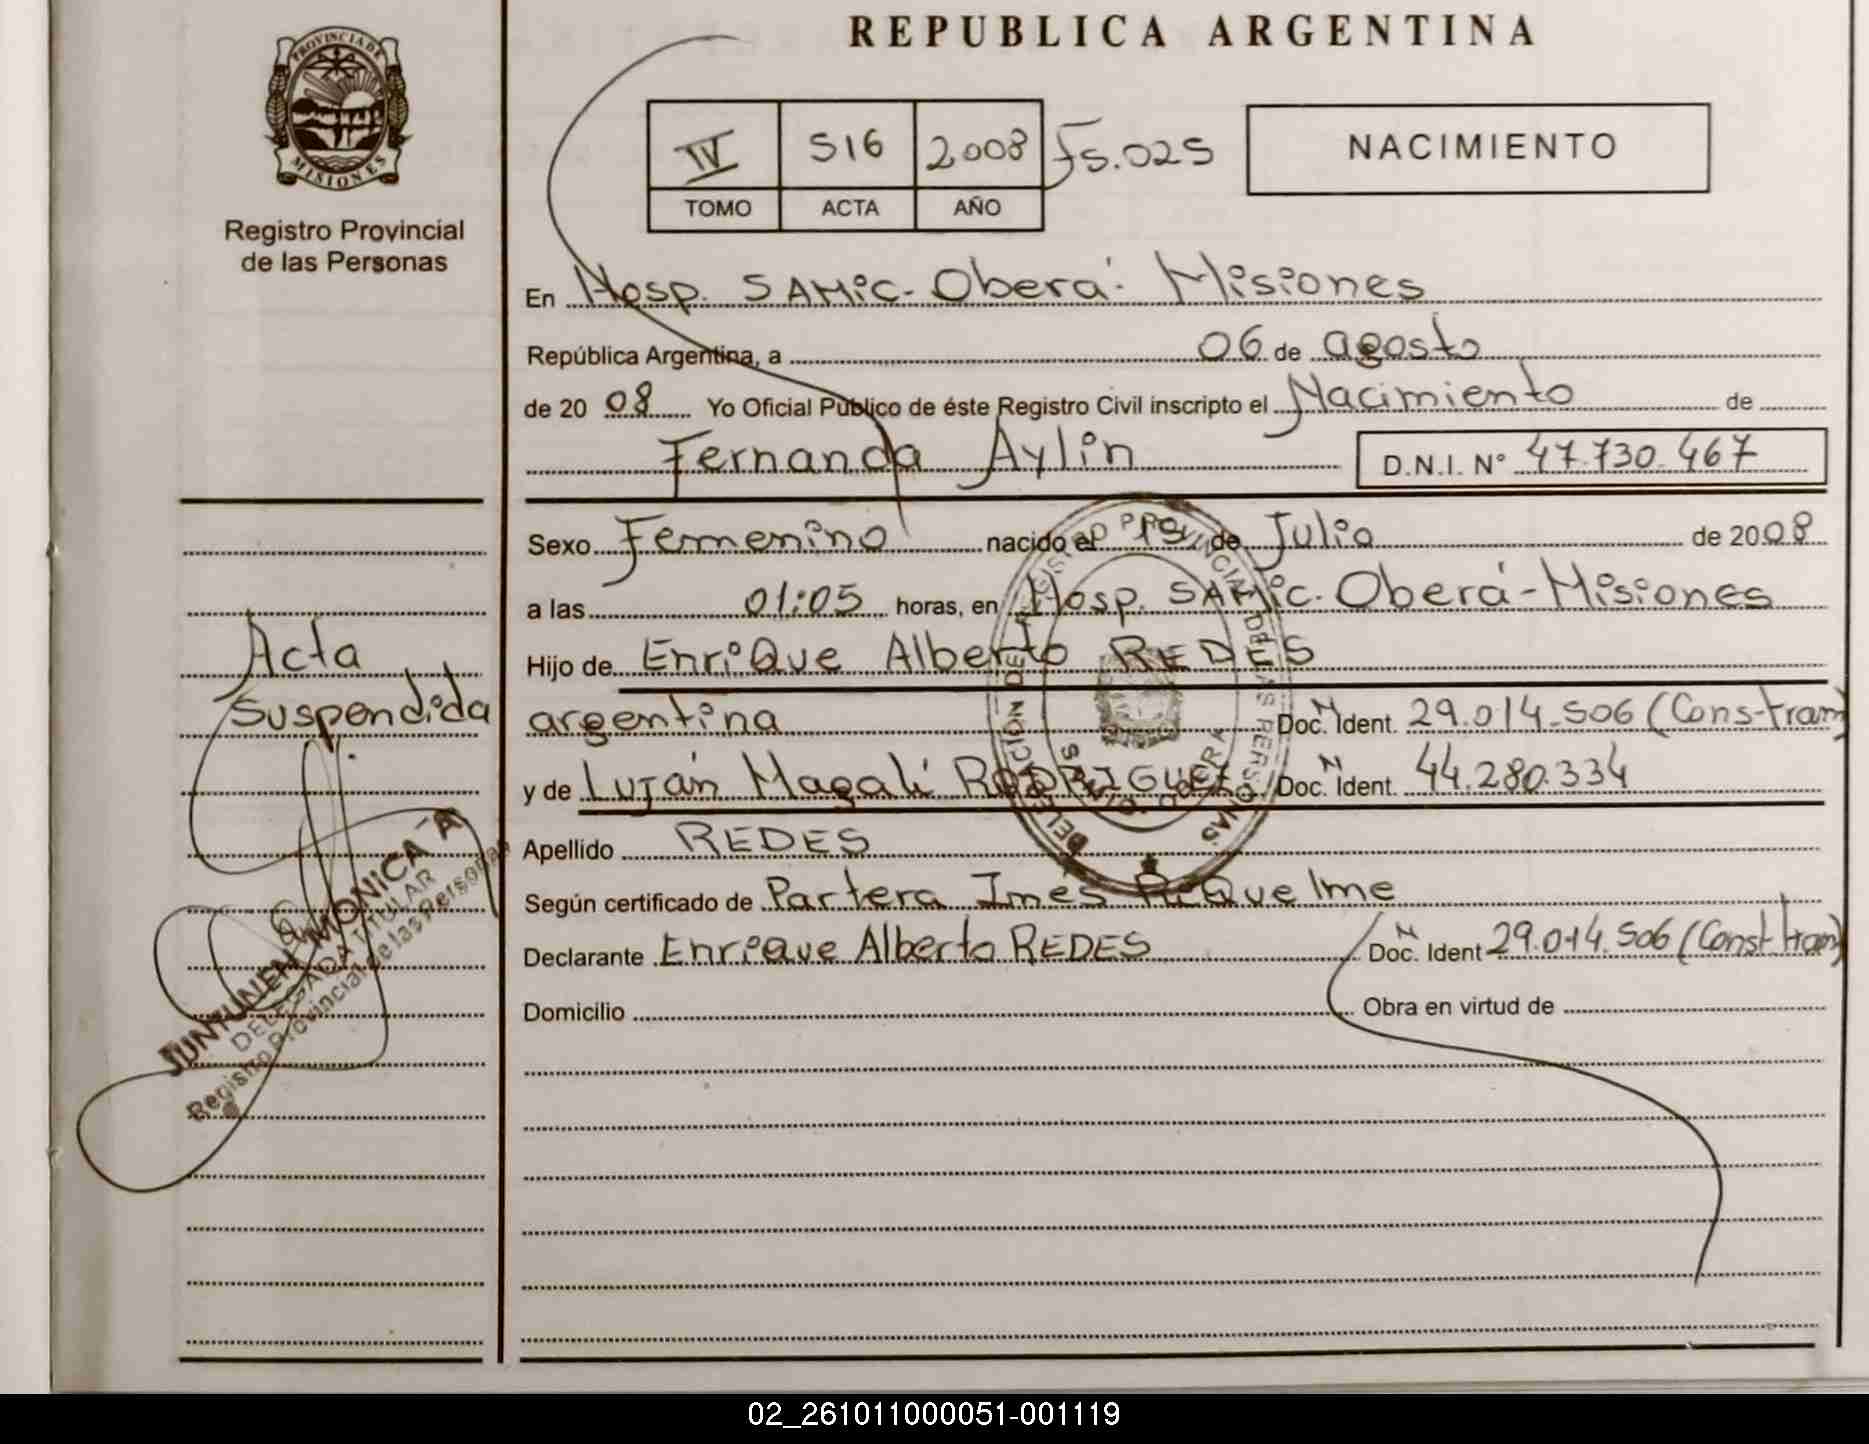 PROVINCIA DE
MISIONES
Registro Provincial
de las Personas
REPUBLICA ARGENTINA
IV 516 2008 Fs.025
TOMO ACTA AÑO
NACIMIENTO
En Hosp. SAMic. Oberá. Misiones
República Argentina, a 06 de agosto
de 20 08 Yo Oficial Público de éste Registro Civil inscripto el Nacimiento de
Fernanda Aylin D.N.I. N° 47.730.467
Sexo Femenino nacido el de Julio de 2008
a las 01:05 horas, en Hosp. SAMic. Oberá - Misiones
Hijo de Enrique Alberto REDES
argentina Doc. N Ident. 29.014.506 (Cons-tram)
y de Luján Magalí RODRIGUEZ Doc. N Ident. 44.280.334
Apellido REDES
Según certificado de Partera Ines Riquelme
Declarante Enrique Alberto REDES Doc. N Ident 29.014.506 (Const.tram)
Domicilio Obra en virtud de
Acta
Suspendida
JUNTUNEN MONICA A
DELEGADA TITULAR
Registro Provincial de las Personas
02_261011000051-001119